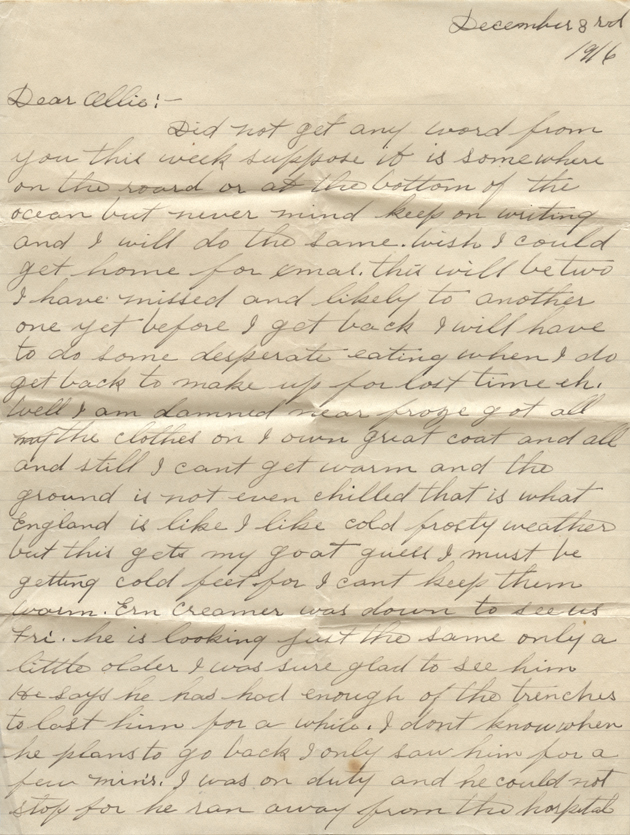 December 3rd
1916
Dear Allie:-
Did not get any word from
you this week suppose it is somewhere
on the roard or at the bottom of the
ocean but never mind keep on writing
and I will do the same. Wish I could
get home for xmas. this will be two
I have missed and likely to another
one yet before I get back I will have
to do some desperate eating when I do
get back to make up for lost time eh.
Well I am damned near froze got all
the clothes on I own great coat and all
and still I cant get warm and the
ground is not even chilled that is what
England is like I like cold frosty weather
but this gets my goat guess I must be
getting cold feet for I cant keep them
warm. Ern Creamer was down to see us
Fri. he is looking just the same only a
little older I was sure glad to see him
He says he has had enough of the trenches
to last him for a while. I dont know when
he plans to go back I only saw him for a
few mins. I was on duty and he could not
stop for he ran away from the hospital